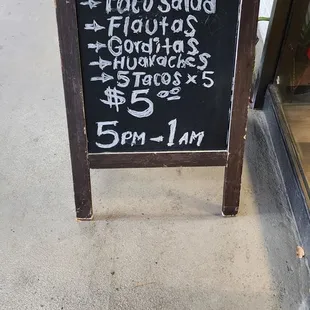 → Taco Salad
→ Flautas
→ Gorditas
→ Huaraches
→ 5 Tacos x 5
$5.00
5PM - 1AM